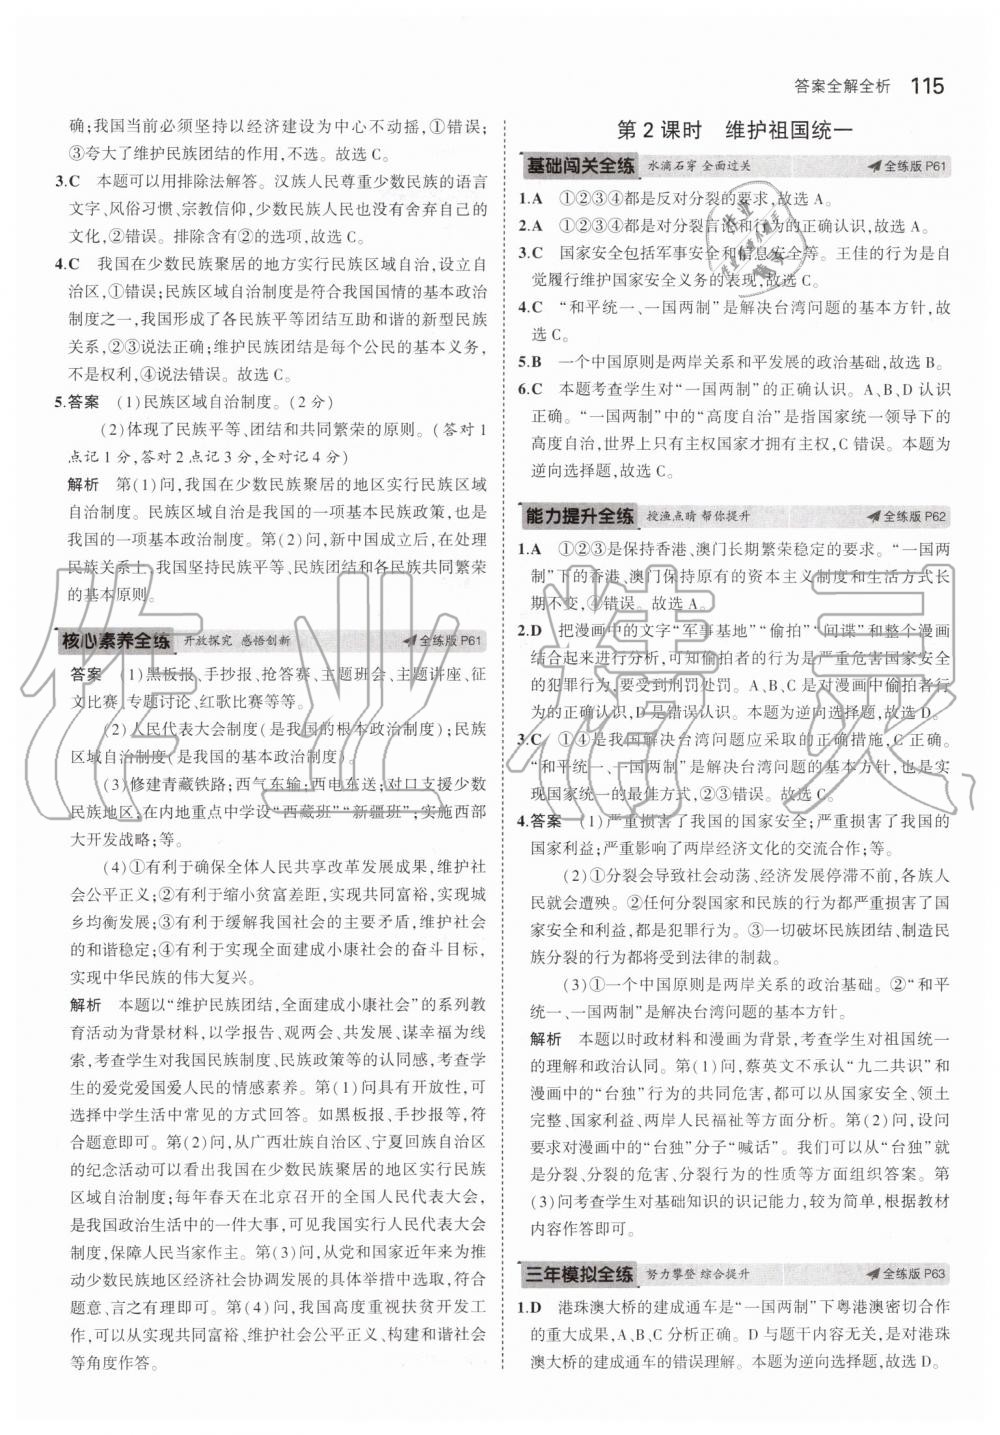 答案全解全析 115
确;我国当前必须坚持以经济建设为中心不动摇,①错误;
③夸大了维护民族团结的作用,不选。故选C。
3.C 本题可以用排除法解答。汉族人民尊重少数民族的语言
文字、风俗习惯、宗教信仰,少数民族人民也没有舍弃自己的
文化,②错误。排除含有②的选项,故选C。
4.C 我国在少数民族聚居的地方实行民族区域自治,设立自
治区,①错误;民族区域自治制度是符合我国国情的基本政治
制度之一,我国形成了各民族平等团结互助和谐的新型民族
关系,②③说法正确;维护民族团结是每个公民的基本义务,
不是权利,④说法错误。故选C。
5.答案 (1)民族区域自治制度。(2分)
(2)体现了民族平等、团结和共同繁荣的原则。(答对1
点记1分,答对2点记3分,全对记4分)
解析 第(1)问,我国在少数民族聚居的地区实行民族区域
自治制度。民族区域自治制度是我国的一项基本民族政策,也
是我国的一项基本政治制度。第(2)问,新中国成立后,在处理
民族关系上,我国坚持民族平等、民族团结和各民族共同繁荣
的基本原则。
核心素养全练 开放探究 感悟创新 全练版P61
答案 (1)黑板报、手抄报、抢答赛、主题班会、主题讲座、征
文比赛、专题讨论、红歌比赛等等。
(2)人民代表大会制度(是我国的根本政治制度);民族
区域自治制度(是我国的基本政治制度)。
(3)修建青藏铁路;西气东输;西电东送;对口支援少数
民族地区;在内地重点中学设“西藏班”“新疆班”;实施西部
大开发战略;等。
(4)①有利于确保全体人民共享改革发展成果,维护社
会公平正义;②有利于缩小贫富差距,实现共同富裕,实现城
乡均衡发展;③有利于缓解我国社会的主要矛盾,维护社会
的和谐稳定;④有利于实现全面建成小康社会的奋斗目标,
实现中华民族的伟大复兴。
解析 本题以“维护民族团结,全面建成小康社会”的系列教
育活动为背景材料,以学报告、观两会、共发展、谋幸福为线
索,考查学生对我国民族制度、民族政策等的认同感,考查学
生的爱党爱国爱人民的情感素养。第(1)问具有开放性,可
选择中学生活中常见的方式回答。如黑板报、手抄报等,符
合题意即可。第(2)问,从广西壮族自治区、宁夏回族自治区
的纪念活动可以看出我国在少数民族聚居的地区实行民族
区域自治制度;每年春天在北京召开的全国人民代表大会,
是我国政治生活中的一件大事,可见我国实行人民代表大会
制度,保障人民当家作主。第(3)问,从党和国家近年来为推
动少数民族地区经济社会协调发展的具体举措中找,符合
题意、言之有理即可。第(4)问,我国高度重视扶贫开发工
作,可以从实现共同富裕、维护社会公平正义、构建和谐社会
等角度作答。
第2课时 维护祖国统一
基础闯关全练 水滴石穿 全面过关 全练版P61
1.A ①②③④都是反对分裂的要求,故选A。
2.A ①②③④都是对分裂言论和行为的正确认识,故选A。
3.C 国家安全包括军事安全和信息安全等。王佳的行为是自
觉履行维护国家安全义务的表现,故选C。
4.C “和平统一、一国两制”是解决台湾问题的基本方针,故
选C。
5.B 一个中国原则是两岸关系和平发展的政治基础,故选B。
6.C 本题考查学生对“一国两制”的正确认识。A、B、D认识
正确。“一国两制”中的“高度自治”是指国家统一领导下的
高度自治,世界上只有主权国家才拥有主权,C错误。本题为
逆向选择题,故选C。
能力提升全练 授渔点睛 帮你提升 全练版P62
1.A ①②③是保持香港、澳门长期繁荣稳定的要求。“一国两
制”下的香港、澳门保持原有的资本主义制度和生活方式长
期不变,④错误。故选A。
2.D 把漫画中的文字“军事基地”“偷拍”“间谍”和整个漫画
结合起来进行分析,可知偷拍者的行为是严重危害国家安全
的犯罪行为,要受到刑罚处罚。A、B、C是对漫画中偷拍者行
为的正确认识,D是错误认识。本题为逆向选择题,故选D。
3.C ①④是我国解决台湾问题应采取的正确措施,C正确。
“和平统一、一国两制”是解决台湾问题的基本方针,也是实
现国家统一的最佳方式,②③错误。故选C。
4.答案 (1)严重损害了我国的国家安全;严重损害了我国的
国家利益;严重影响了两岸经济文化的交流合作;等。
(2)①分裂会导致社会动荡、经济发展停滞不前,各族人
民就会遭殃。②任何分裂国家和民族的行为都严重损害了国
家安全和利益,都是犯罪行为。③一切破坏民族团结、制造民
族分裂的行为都将受到法律的制裁。
(3)①一个中国原则是两岸关系的政治基础。②“和平
统一、一国两制”是解决台湾问题的基本方针。
解析 本题以时政材料和漫画为背景,考查学生对祖国统一
的理解和政治认同。第(1)问,蔡英文不承认“九二共识”和
漫画中的“台独”行为的共同危害,都可以从国家安全、领土
完整、国家利益、两岸人民福祉等方面分析。第(2)问,设问
要求对漫画中的“台独”分子“喊话”。我们可以从“台独”就
是分裂、分裂的危害、分裂行为的性质等方面组织答案。第
(3)问考查学生对基础知识的识记能力,较为简单,根据教材
内容作答即可。
三年模拟全练 努力攀登 综合提升 全练版P63
1.D 港珠澳大桥的建成通车是“一国两制”下粤港澳密切合作
的重大成果,A、B、C分析正确。D与题干内容无关,是对港珠
澳大桥的建成通车的错误理解。本题为逆向选择题,故选D。
作业精灵